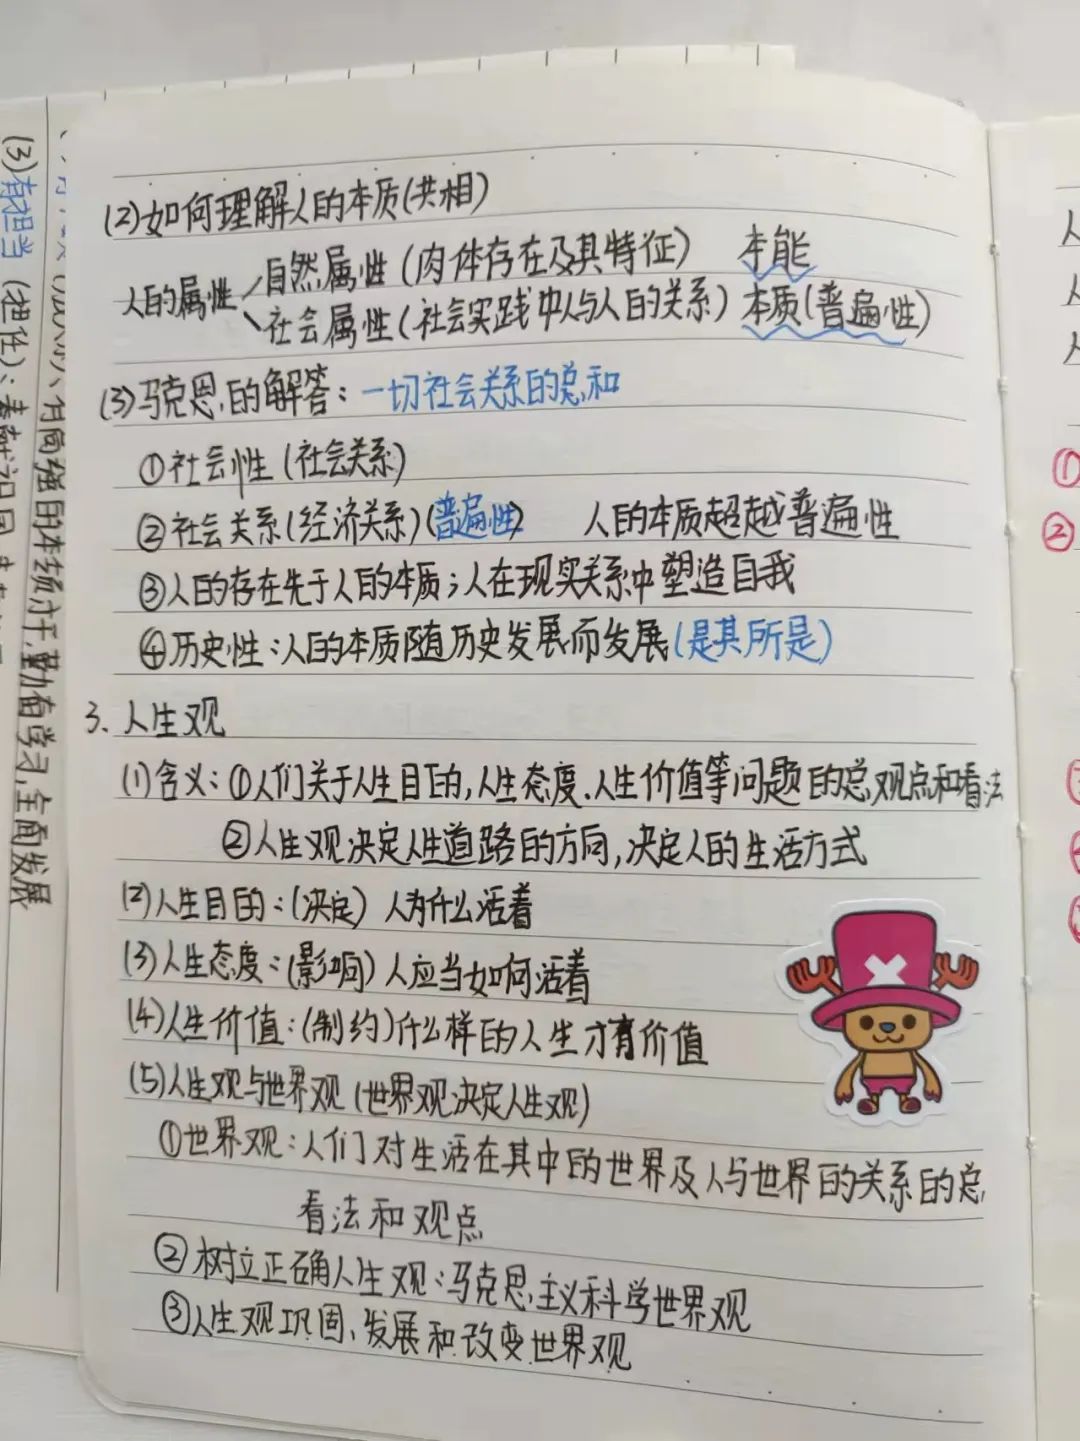 (2)如何理解人的本质(共相)
人的属性 自然属性(肉体存在及其特征) 本能
社会属性(社会实践中人与人的关系) 本质(普遍性)
(3)马克思的解答:一切社会关系的总和
①社会性(社会关系)
②社会关系(经济关系)(普遍性) 人的本质超越普遍性
③人的存在先于人的本质;人在现实关系中塑造自我
④历史性:人的本质随历史发展而发展(是其所是)
3、人生观
(1)含义:①人们关于人生目的,人生态度、人生价值等问题的总观点和看法
②人生观决定人生道路的方向,决定人的生活方式
(2)人生目的:(决定)人为什么活着
(3)人生态度:(影响)人应当如何活着
(4)人生价值:(制约)什么样的人生才有价值
(5)人生观与世界观(世界观决定人生观)
①世界观:人们对生活在其中的世界及人与世界的关系的总
看法和观点
②树立正确人生观:马克思主义科学世界观
③人生观巩固、发展和改变世界观
(3)有担当(理任):奉献祖国
有高强的本领才干,勤奋学习,全面发展
人
人
人
①
②